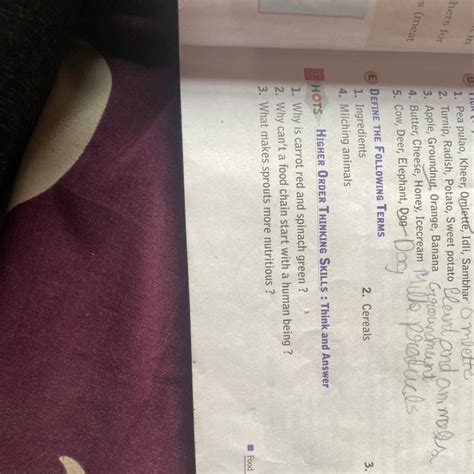 hers for
s (meat
1. Pea pulao, Kheer, Omlette, Idli, Sambhar
2. Turnip, Radish, Potato, Sweet potato Plant and animals
3. Apple, Groundnut, Orange, Banana
4. Butter, Cheese, Honey, Icecream Milk products
5. Cow, Deer, Elephant, Dog Dog
E DEFINE THE FOLLOWING TERMS
1. Ingredients 2. Cereals 3.
4. Milching animals
HOTS HIGHER ORDER THINKING SKILLS : Think and Answer
1. Why is carrot red and spinach green ?
2. Why can't a food chain start with a human being ?
3. What makes sprouts more nutritious ?
Food